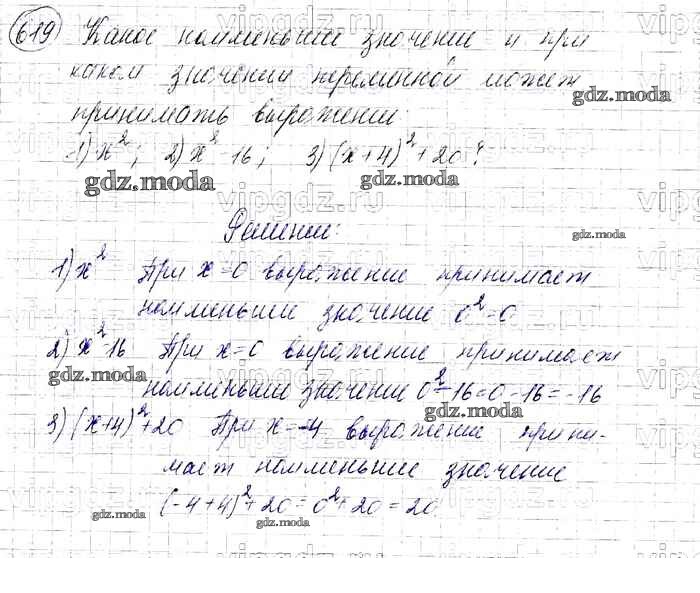 619 Какое наименьшее значение и при
каком значении переменной может
gdz.moda
принимать выражение:
1) x²; 2) x² - 16; 3) (x+4)² + 20?
gdz.moda gdz.moda
Решение:
gdz.moda
1) x² При x=0 выражение принимает
наименьшее значение 0²=0
2) x²-16 При x=0 выражение принимает
gdz.moda
наименьшее значение 0²-16=0-16=-16
gdz.moda
3) (x+4)²+20 При x=-4 выражение прини-
мает наименьшее значение
(-4+4)²+20=0²+20=20
gdz.moda
gdz.moda